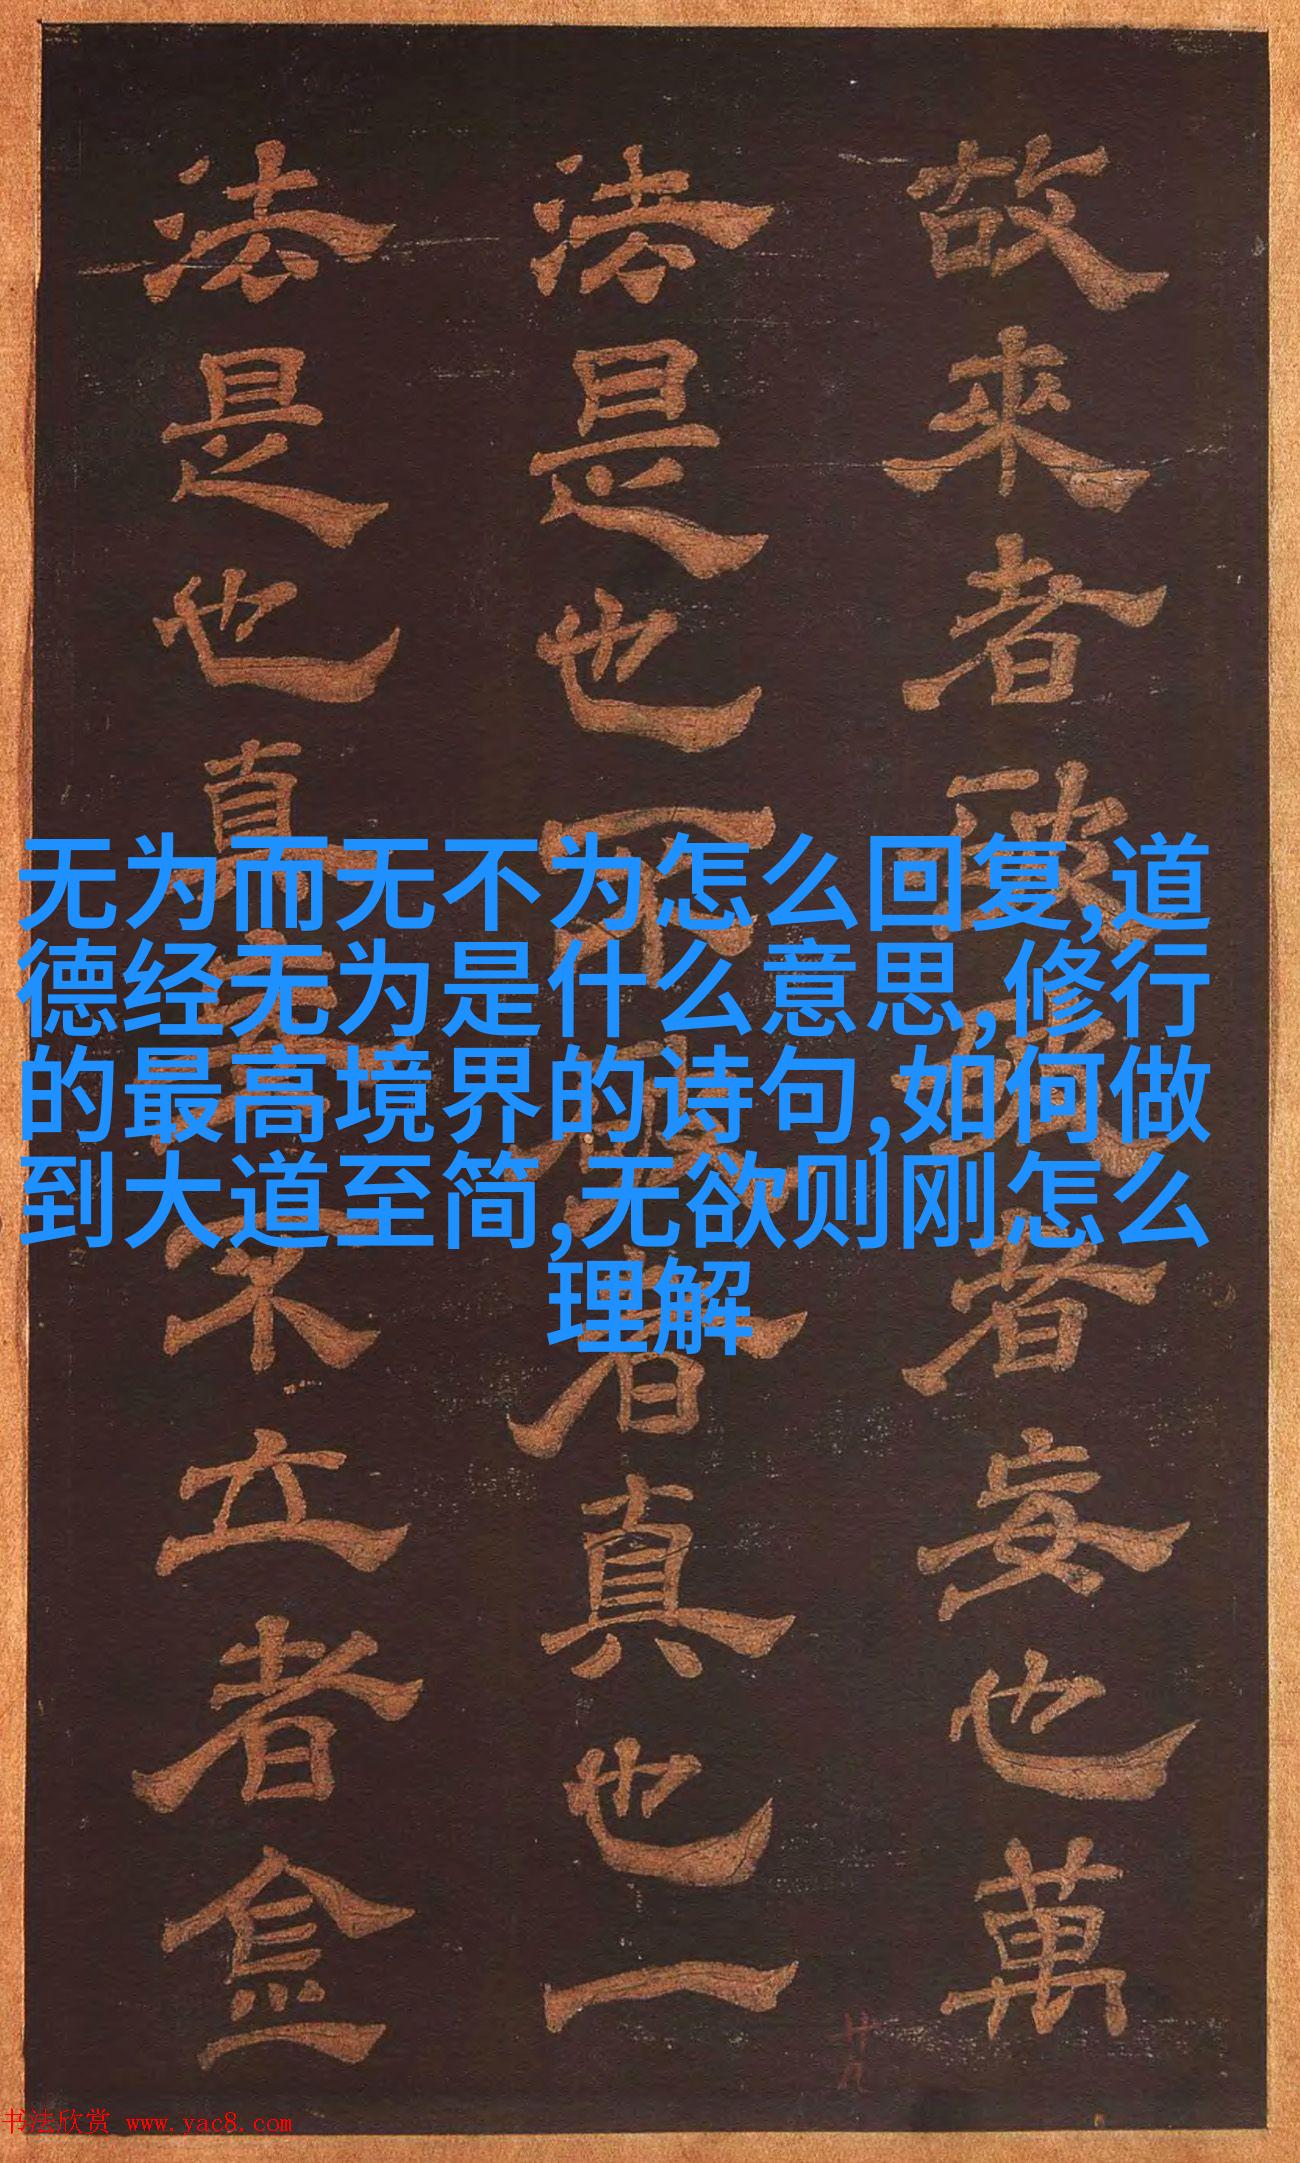 故來者
者妄也萬
法是也
者真也一
法是也真
不立者
无为而无不为怎么回复,道
德经无为是什么意思,修行
的最高境界的诗句,如何做
到大道至简,无欲则刚怎么
理解
廿九
书法欣赏 www.yac8.com